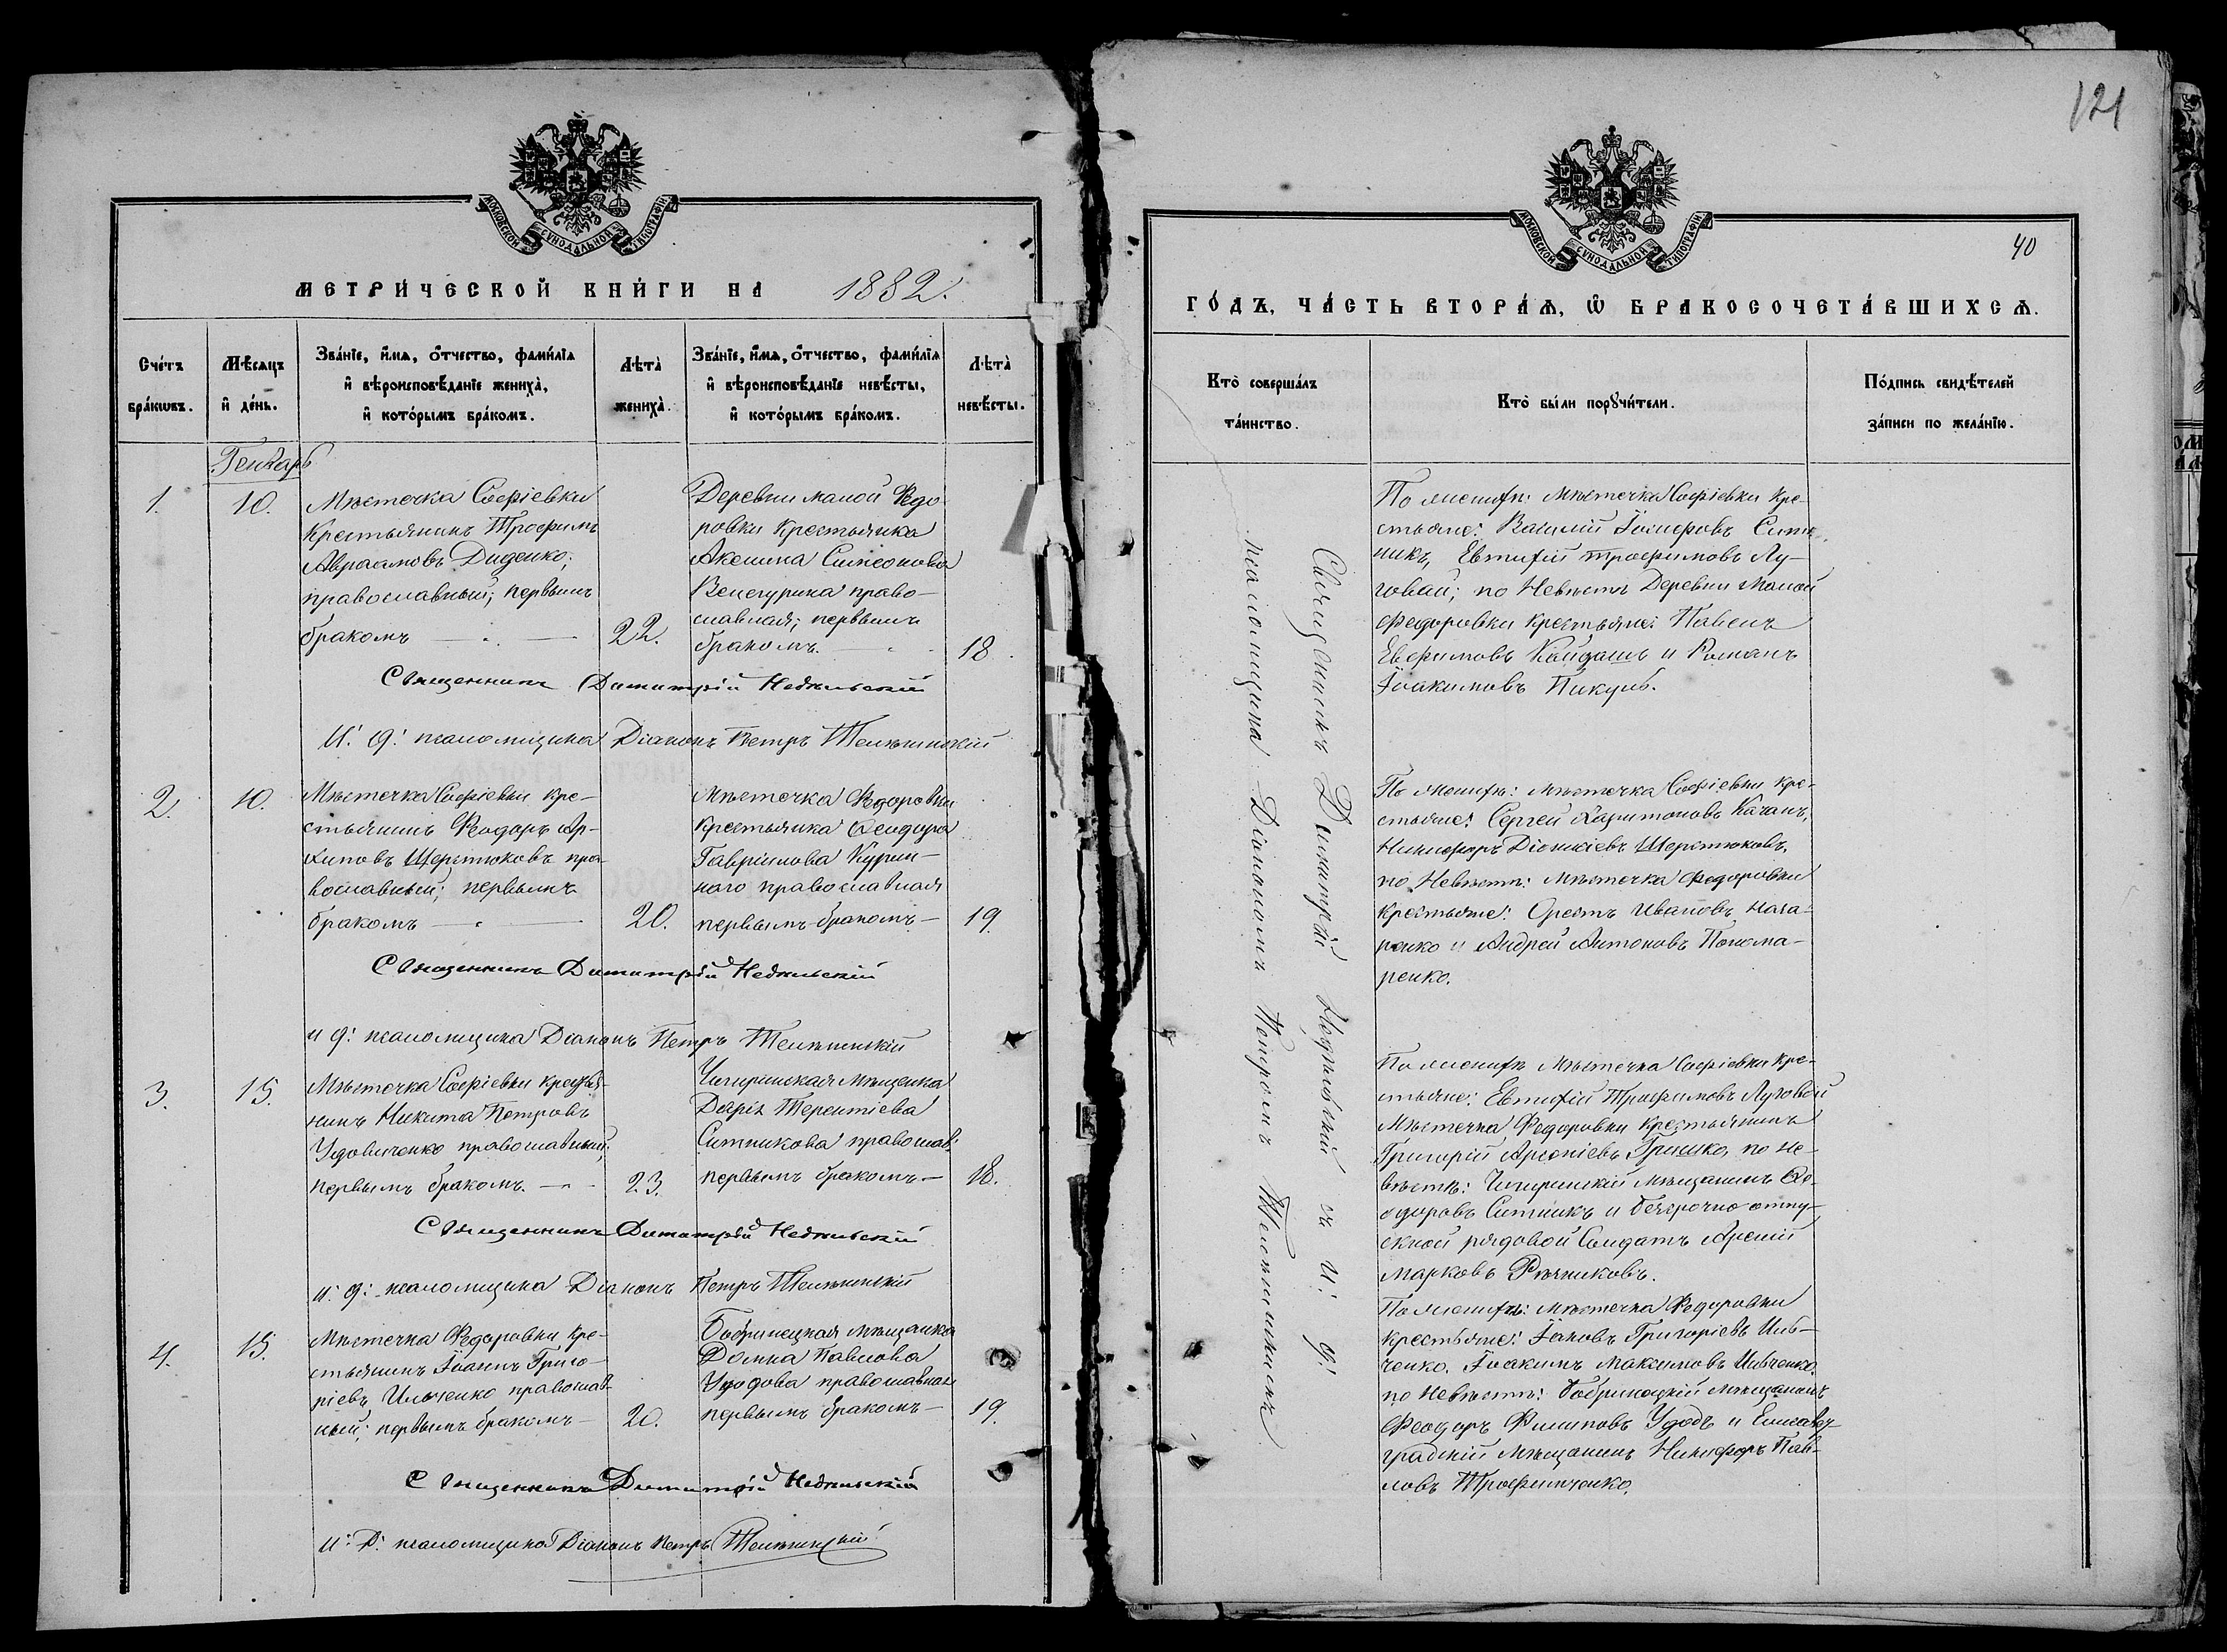 МОСКОВСКОЙ СѴНОДАЛЬНОЙ ТИПОГРАФІИ
МЕТРИ́ЧЕСКОЙ КНИ́ГИ НА 1882.
Сче́тъ бра́кѡвъ.
Мѣ́сяцъ и҆ де́нь.
Зва́нїе, и҆́мѧ, ѻ҆́тчество, фами́лїѧ
и҆ вѣроисповѣ́данїе жениха̀,
и҆ кото́рымъ бра́комъ.
Лѣта̀ жениха̀.
Зва́нїе, и҆́мѧ, ѻ҆́тчество, фами́лїѧ
и҆ вѣроисповѣ́данїе невѣ́сты,
и҆ кото́рымъ бра́комъ.
Лѣта̀ невѣ́сты.
Генварь
1.
10.
Мѣстечка Софіевки
Крестьянинъ Трофимъ
Авраамовъ Диденко;
православный; первымъ
бракомъ
22.
Деревни малой Ѳедо-
ровки Крестьянка
Аксинна Симеонова
православная; первымъ
бракомъ.
18.
Священникъ Димитрій Недѣльскій
И: д: псаломщика Діаконъ Петръ
2.
10.
Мѣстечка Софіевки кре-
стьянинъ Ѳеодоръ Ар-
хиповъ Шерстюковъ пра-
вославный; первымъ
бракомъ
20.
Мѣстечка Ѳедоровки
крестьянка Ѳеодора
Гавріилова Курин-
наго православная
первымъ бракомъ
19.
Священникъ Димитрій Недѣльскій
и д: псаломщика Діаконъ Петръ
3.
15.
Мѣстечка Софіевки крестья-
нинъ Никита Петровъ
Удовиченко православный;
первымъ бракомъ.
23.
Чигиринская мѣщанка
Дарія Терентіева
Ситникова православ:
первымъ бракомъ
18.
Священникъ Димитрій Недѣльскій
и: д: псаломщика Діаконъ Петръ
4.
15.
Мѣстечка Ѳедоровки кре-
стьянинъ Іоаннъ Григо-
ріевъ Ильченко православ-
ный; первымъ бракомъ
20.
Бобринецкая мѣщанка
Домна Павлова
Удодова православная
первымъ бракомъ
19.
Священникъ Димитрій Недѣльскій
И: Д: псаломщика Діаконъ Петръ
121
МОСКОВСКОЙ СѴНОДАЛЬНОЙ ТИПОГРАФІИ
40
ГО́ДЪ, ЧА́СТЬ ВТОРА́Ѧ, Ѡ҆ БРАКОСОЧЕТА́ВШИХСѦ.
Кто̀ соверша́лъ
та́инство.
Кто̀ бы́ли порꙋчи́тели.
По́дпись свидѣ́телей
за́писи по жела́нїю.
Священникъ Димитрій Недѣльскій съ И: д:
псаломщика Діакономъ Петромъ
По женихѣ: мѣстечка Софіевки кре-
стьяне: Василій Іосифовъ Сит-
никъ, Евтихій Трофимовъ Лу-
говой; по Невѣстѣ Деревни Малой
Федоровки крестьяне: Павелъ
Евфимовъ Кайдашъ и Романъ
Іоакимовъ Пикулъ.
По женихѣ: мѣстечка Софіевки кре-
стьяне: Сергей Харитоновъ Качанъ,
Никифоръ Діонисіевъ Шерстюковъ,
по Невѣстѣ: мѣстечка Федоровки
крестьяне: Орестъ Ивановъ Наза-
ренко и Андрей Антоновъ Понома-
ренко.
По женихѣ мѣстечка Софіевки кре-
стьяне: Евтихій Трофимовъ Луговой
Мѣстечка Ѳедоровки крестьянинъ
Григорій Арсеніевъ Гришко, по Не-
вѣстѣ: Чигиринскій мѣщанинъ Ѳе-
одоровъ Ситникъ и безсрочно отпу-
скной рядовой Солдатъ Арсеній
Марковъ Рѣчниковъ.
По женихѣ: мѣстечка Ѳедоровки
крестьяне: Іаковъ Григоріевъ Иль-
ченко, Іоакимъ Максимовъ Ильченко,
по Невѣстѣ: Бобринецкій мѣщанинъ
Феодоръ Филиповъ Удодъ и Елисавет-
градскій мѣщанинъ Никифоръ Пав-
ловъ Трофимченко.